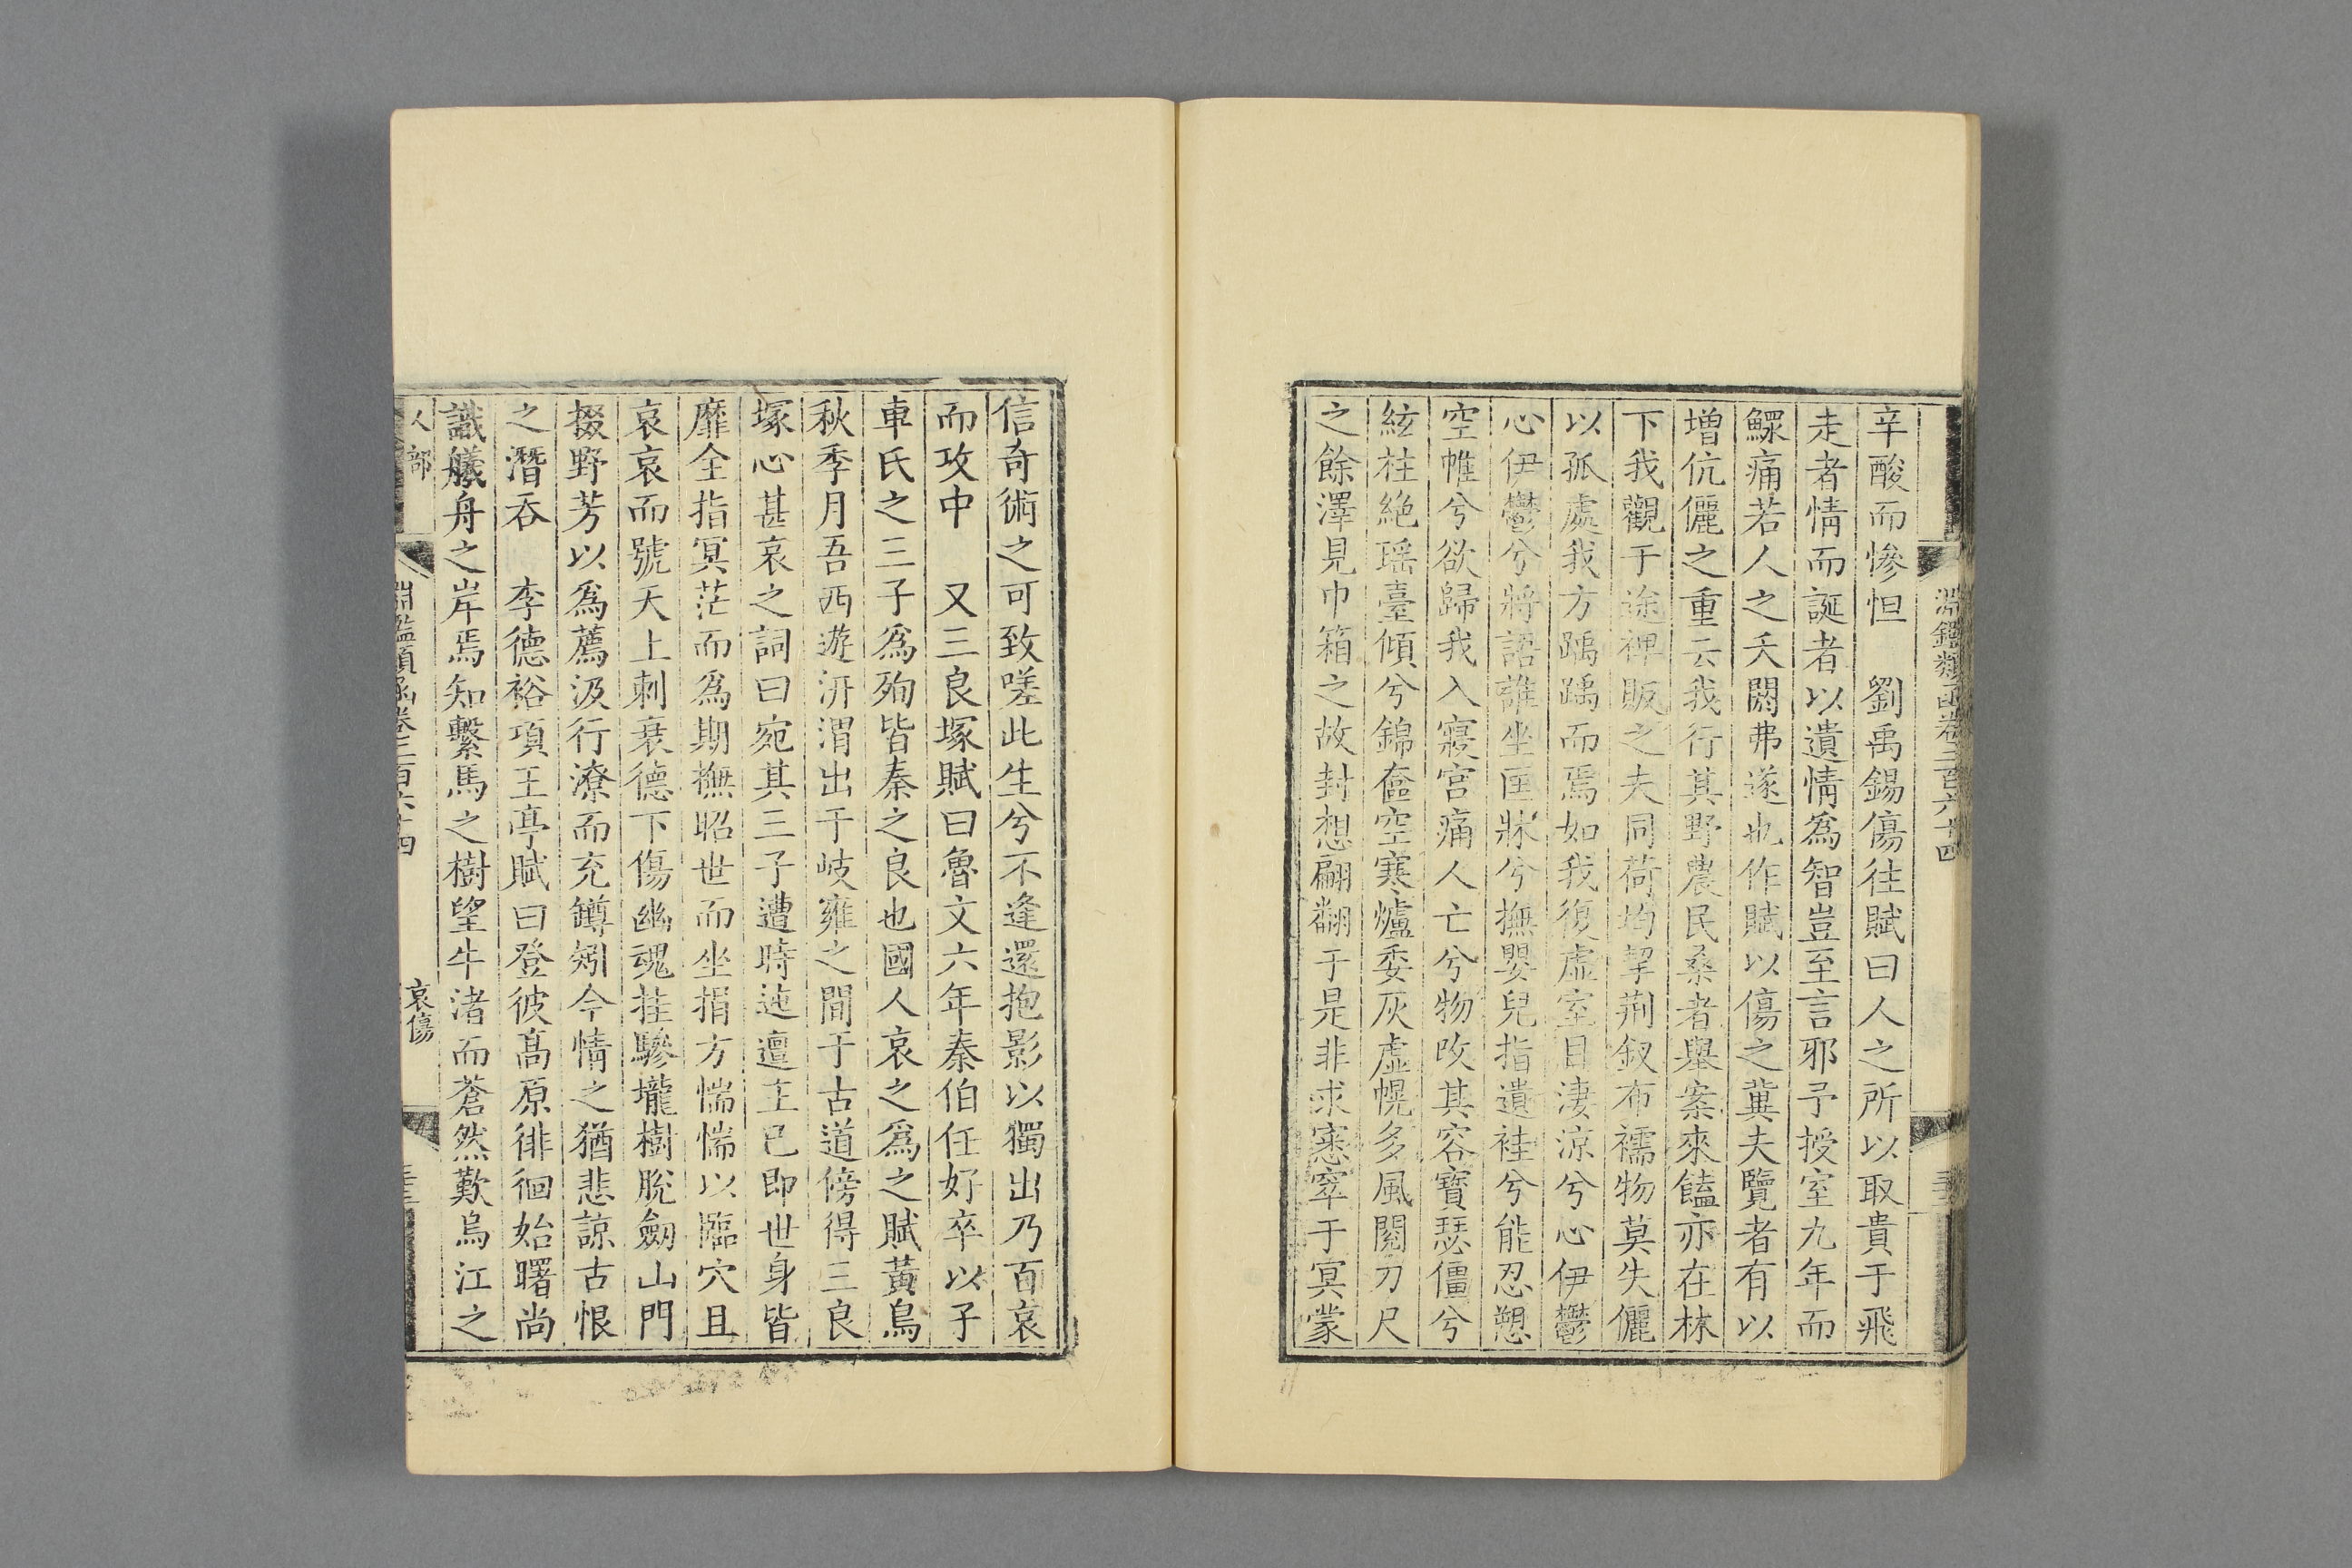 淵鑑類函卷三百六十四
辛酸而慘怛　劉禹錫傷往賦曰人之所以取貴于飛
走者情而誕者以遺情爲智豈至言邪予授室九年而
鰥痛若人之夭閼弗遂也作賦以傷之冀夫覽者有以
增伉儷之重云我行其野農民桑者舉案來饁亦在林
下我觀于途裨販之夫同荷均挈荆釵布襦物莫失儷
以孤處我方踽踽而焉如我復虛室目淒涼兮心伊鬱
心伊鬱兮將語誰坐匡牀兮撫嬰兒指遺袿兮能忍愬
空帷兮欲歸我入寢宮痛人亡兮物改其容寶瑟僵兮
絃柱絕瑶臺傾兮錦奩空寒爐委灰虛幌多風閱刀尺
之餘澤見巾箱之故封想翩翻于是非求窸窣于冥蒙
信奇術之可致嗟此生兮不逢還抱影以獨出乃百哀
而攻中　又三良塚賦曰魯文六年秦伯任好卒以子
車氏之三子爲殉皆秦之良也國人哀之爲之賦黃鳥
秋季月吾西遊汧渭出于岐雍之間于古道傍得三良
塚心甚哀之詞曰宛其三子遭時迍邅主已即世身皆
靡全指冥茫而爲期撫昭世而坐捐方惴惴以臨穴且
哀哀而號天上刺衰德下傷幽魂挂驂壠樹脫劒山門
掇野芳以爲薦汲行潦而充罇矧今情之猶悲諒古恨
之潛吞　李德裕項王亭賦曰登彼高原徘徊始曙尚
識艤舟之岸焉知繫馬之樹望牛渚而蒼然歎烏江之
人部
淵鑑類函卷三百六十四
哀傷